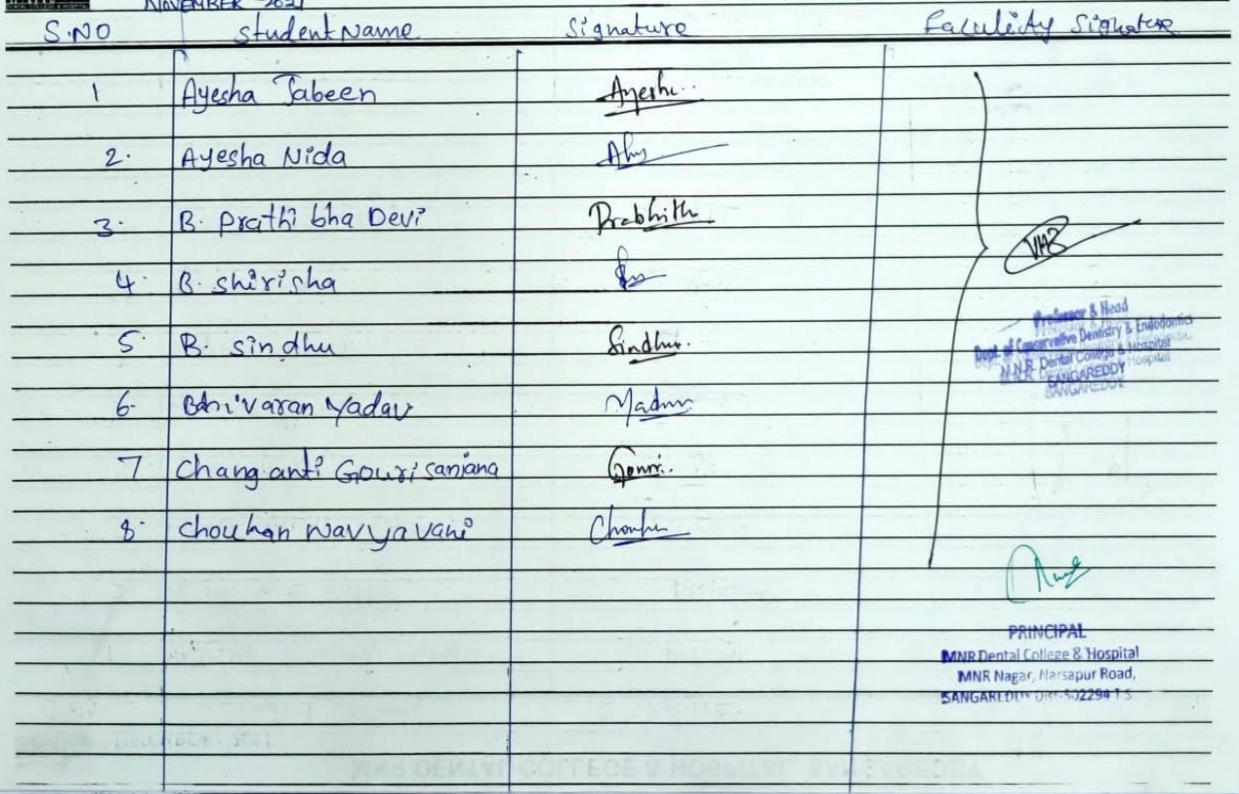 NOVEMBER - 2021
S.NO Student Name Signature Faculity Signature
1 Ayesha Jabeen Ayesha
2. Ayesha Nida
3. B. Prathi bha Devi Prabhith
4. B. shirisha
5. B. sindhu Sindhu
6. Bhivaran Yadav
7 Changanti Gouri sanjana Gouri
8. Chouhan Navya Vani
Professor & Head
Dept. of Conservative Dentistry & Endodontics
M.N.R. Dental College & Hospital
SANGAREDDY
PRINCIPAL
MNR Dental College & Hospital
MNR Nagar, Narsapur Road,
SANGAREDDY Dist-502294 T.S